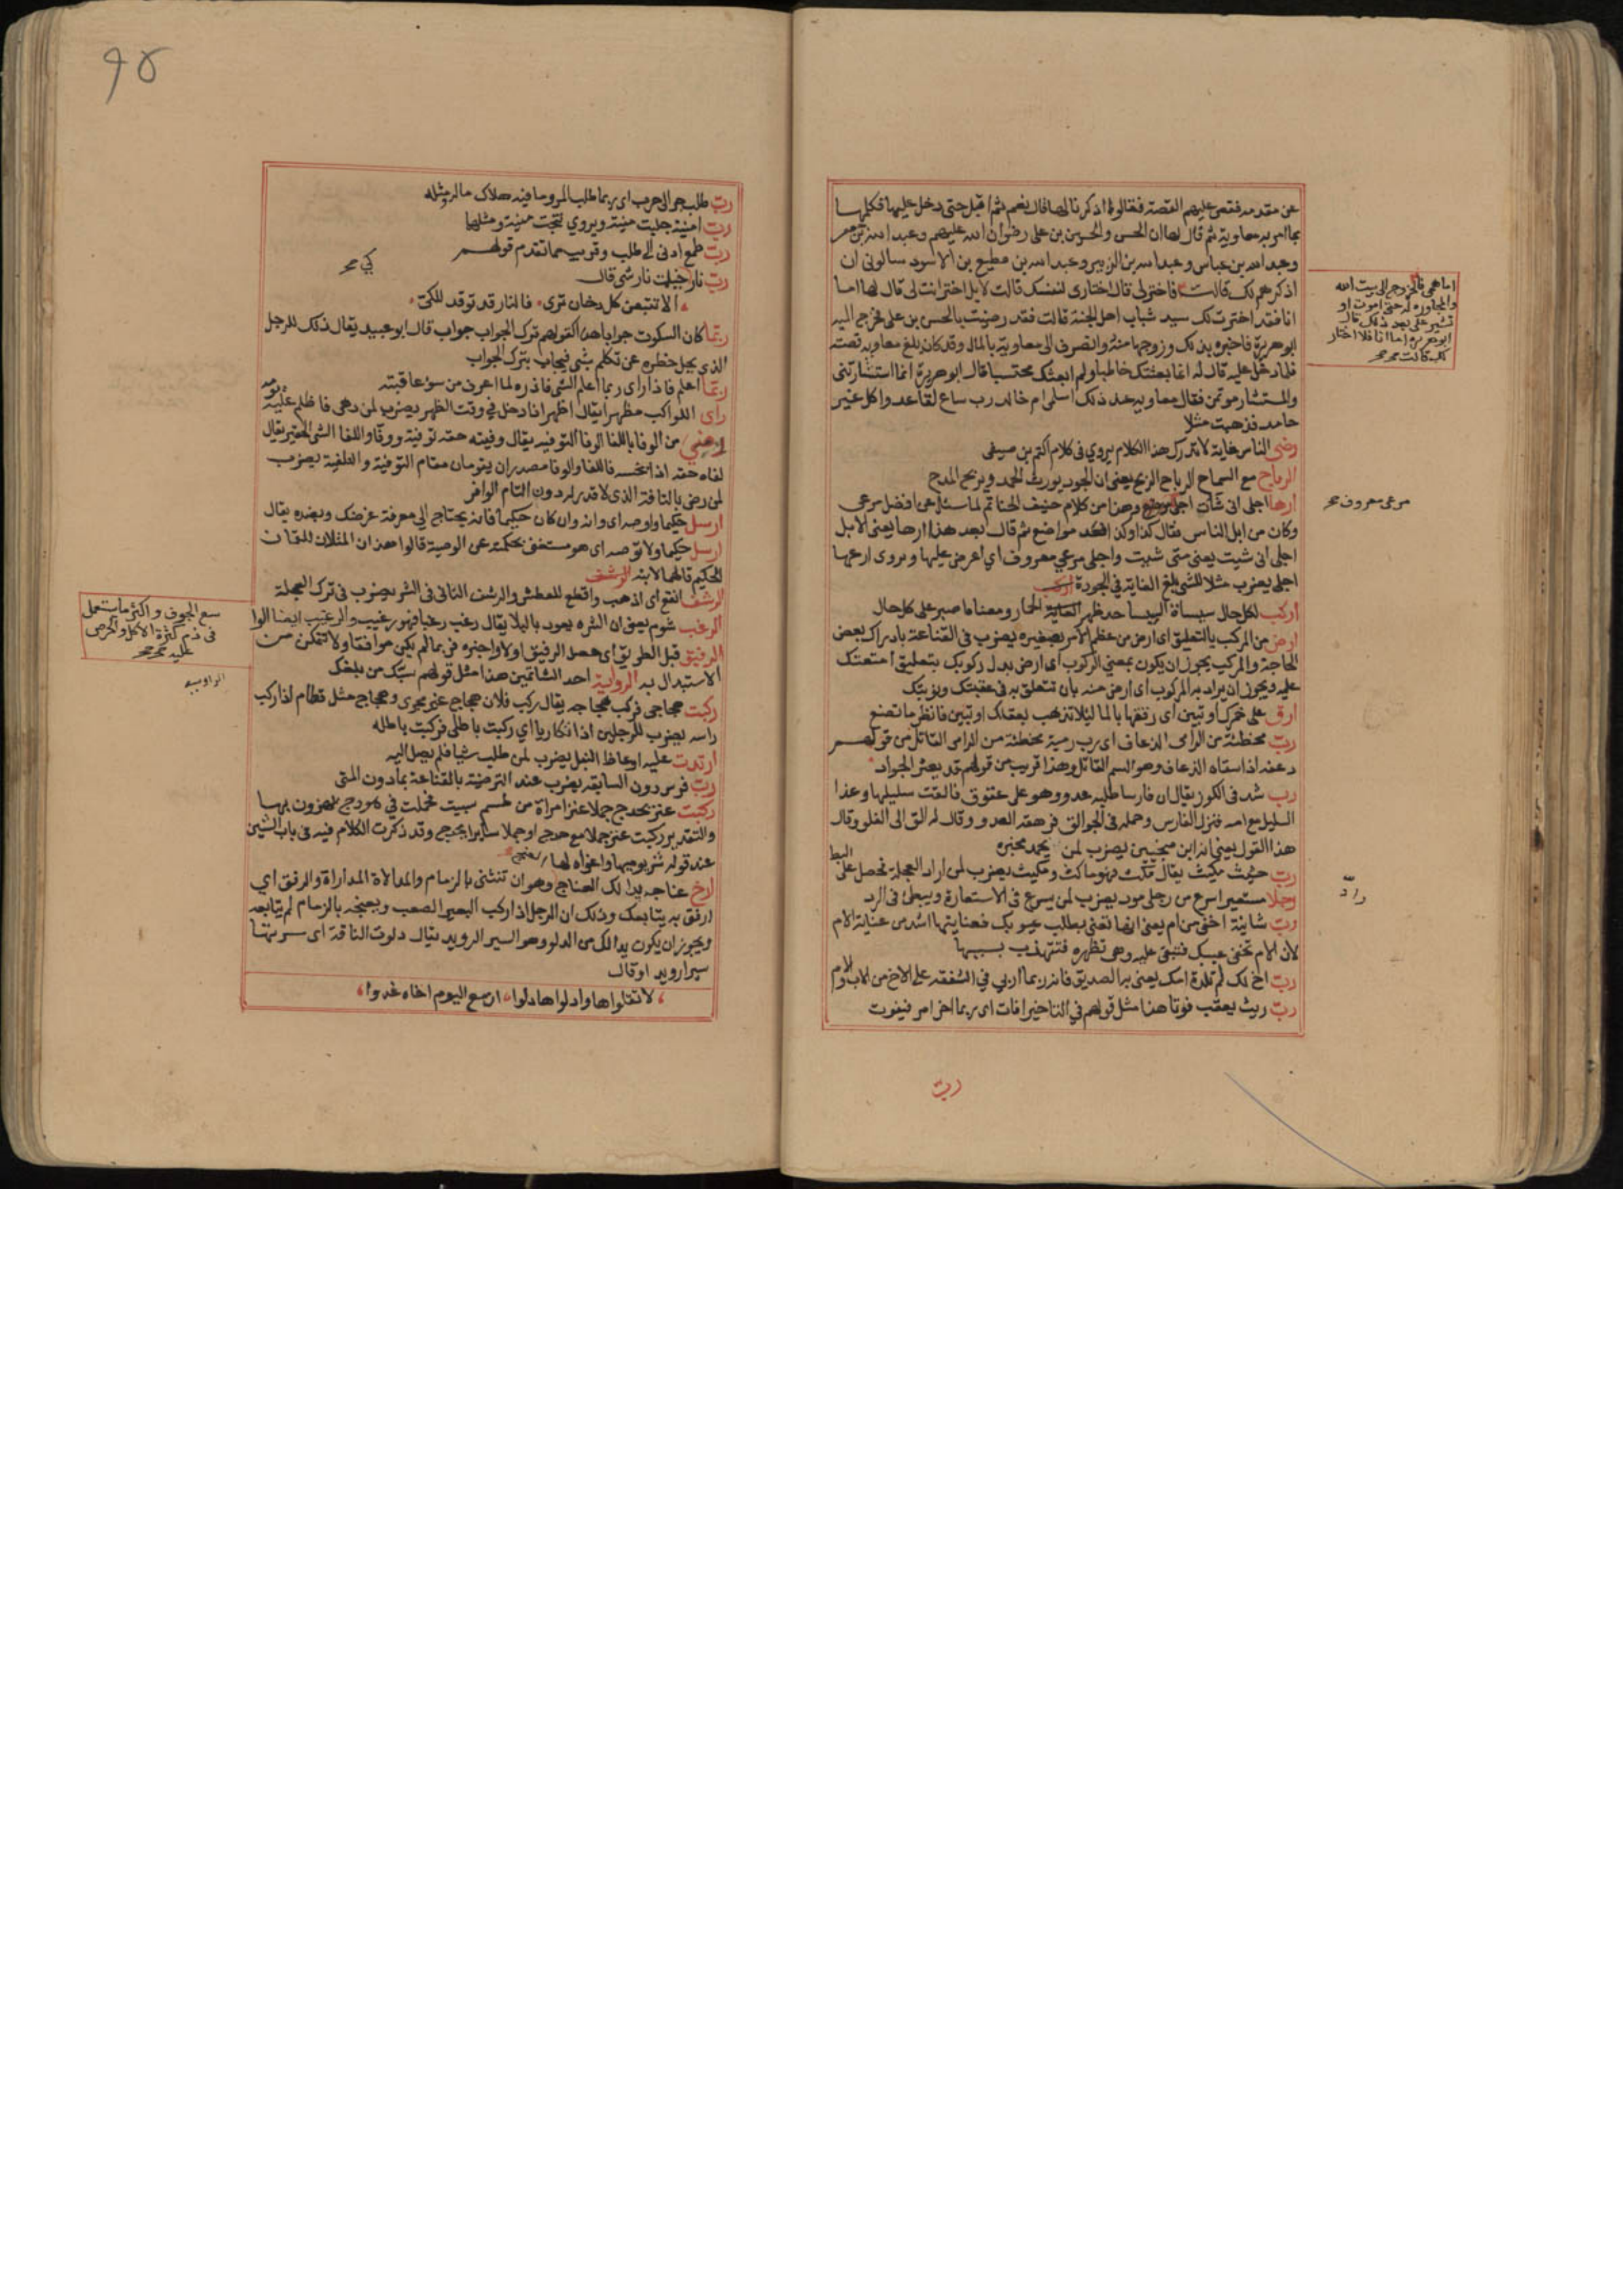 عن مقدمه فقص عليهم القصة فقالوا اذكرنا لها قال نعم ثم اقبل حتى دخل عليها فكلمها
بما امر به معاوية ثم قال لها ان الحسن والحسين بن علي رضوان الله عليهم وعبد الله بن جعفر
وعبد الله بن عباس وعبد الله بن الزبير وعبد الله بن مطيع بن الاسود سالونى ان
اذكرهم لك قالت فاختر لى قال اختارى لنفسك قالت لا بل اختر انت لى قال لها اما
انا فقد اخترت لك سيد شباب اهل الجنة قالت فقد رضيت بالحسن بن على فخرج اليه
ابو هريرة فاخبره بذلك وزوجها منه وانصرف الى معاوية بالمال وقد كان بلغ معاوية قصته
فلما دخل عليه قال له انما بعثتك خاطبا ولم ابعثك محتسبا قال ابو هريرة انها استشارتنى
والمستشار موتمن فقال معاوية عند ذلك اسلمى ام خالد رب ساع لقاعد واكل غير
حامد فذهبت مثلا
رضى الناس غاية لا تدرك هذا الكلام يروي فى كلام اكثم بن صيفى
الرباح مع السماح الرباح الربح يعنى ان الجود يورث الحمد ويربح المدح
ارها اجلى انى شات هذا من كلام حنيف الحناتم لما سئل عن افضل مرعى
وكان من ابل الناس فقال كذا وكذا فعد مواضع ثم قال بعد هذا ارها يعنى الابل
اجلى انى شيت يعنى متى شيت واجلى مرعي معروف اي اعرض عليها ويروى ارعها
اجلى يضرب مثلا للشى بلغ الغاية في الجودة
اركب لكل حال سيساه السيساء ظهر الحمار ومعناه اصبر على كل حال
ارض من المركب بالتعليق اى ارض من عظم الامر بصغيره يضرب فى القناعة بادراك بعض
الحاجة والمركب يجوز ان يكون بمعنى الركوب اى ارض بدل ركوبك بتعليق امتعتك
عليه ويجوز ان يراد به المركوب اى ارض منه بان تتعلق به فى عقبتك ونوبتك
ارق على خمرك او تبين اى رققها بالماء ليلا تذهب بعقلك او تبين فانظر ما تصنع
رب مخطئة من الرامى الذعاف اى رب رمية مخطئة من الرامى القاتل من قولهم
ذعفه اذا سقاه الذعاف وهو السم القاتل وهذا قريب من قولهم قد يعثر الجواد
رب شد فى الكرز يقال ان فارسا طلبه عدو وهو على عقوق فالقت سليلها وعدا
السليل مع امه فنزل الفارس وحمله فى الجوالق فرهقه العدو وقال له الق الى الفلو وقال
هذا القول يعنى انه ابن منجبين يضرب لمن يحمد مخبره
رب حثيث مكيث يقال مكث فهو ماكث ومكيث يضرب لمن اراد العجلة فحصل على البط
رجلا مستعير اسرع من رجلى مود يضرب لمن يسرع فى الاستعارة ويبطئ فى الرد
رب شانئة احفى من ام يعنى انها تعنى بطلب عيوبك فعنايتها اشد من عناية الام
لان الام تخفى عيبك فتبقى عليه وهى تظهره فتتهذب بسببها
رب اخ لك لم تلده امك يعنى به الصديق فانه ربما اربي في الشفقه على الاخ من الاب والام
رب ريث يعقب فوتا هذا مثل قولهم في التاخير افات اى ربما اخر امر فيفوت
رب
اما همى فالخروج الى بيت الله
والمجاورة له حتى اموت او
تشير على بعد ذلك قال
ابو هريرة اما انا فلا اختار
لك قالت صح
مرعى معروف صح
راد
٩٤
رب طلب جر الى حرب اى ربما طلب المرء ما فيه هلاك ماله ومثله
رب امنية جلبت منية ويروي نتجت منية ومثلها
رب طمع ادنى الى طلب وقريب مما تقدم قولهم
رب نار كي خيلت نار شى قال
الا تتبعن كل دخان ترى فالنار قد توقد للكى
ربما كان السكوت جوابا هذا كقولهم ترك الجواب جواب قال ابو عبيد يقال ذلك للرجل
الذى يجل خطره عن تكلم بشى فيجاب بترك الجواب
ربما اعلم فاذر اى ربما اعلم الشى فاذره لما اعرف من سوء عاقبته
راى الكواكب مظهرا يقال اظهر اذا دخل في وقت الظهر يضرب لمن دهى فاظلم عليه يومه
رضي من الوفا باللفا الوفا التوفيه يقال وفيته حقه توفية ووفا واللفا الشى الحقير يقال
لفاه حقه اذا بخسه فاللفا والوفا مصدران يقومان مقام التوفية والتلفية يضرب
لمن رضى بالتافه الذى لا قدر له دون التام الوافر
ارسل حكيما واوصه اى وانه وان كان حكيما فانه يحتاج الى معرفة غرضك وبضده يقال
ارسل حكيما ولا توصه اى هو مستغنى بحكمته عن الوصية قالوا هذان المثلان للقمان
الحكيم قالهما لابنه
الرشف انقع اى اذهب واقطع للعطش والرشف التانى فى الشرب يضرب فى ترك العجلة
الرغب شوم يعنى ان الشره يعود بالبلا يقال رغب رغبا فهو رغيب والرغيب ايضا الوا
الرفيق قبل الطريق اى حصل الرفيق اولا واخبره فربما لم يكن موافقا ولا تتمكن من
الاستبدال به الراوية احد الشاتمين هذا مثل قولهم سبك من بلغك
ركبت هجاجى فركب هجاجه يقال ركب فلان هجاج غير مجرى وهجاج مثل قطام اذا ركب
راسه يضرب للرجلين اذا تكاربا اي ركبت باطلى فركبت باطله
ارتدت عليه ارعاظ النبل يضرب لمن طلب شيا فلم يصل اليه
رب فرس دون السابقه يضرب عند الترضية بالقناعة بما دون المنى
ركبت عنز بحدج جملا عنز امراة من طسم سبيت فحملت في هودج يهزون بها
والتقدير ركبت عنز جملا مع حدج او جملا سايرا بحدج وقد ذكرت الكلام فيه فى باب الشين
عند قوله شر يوميها واغواه لها
ارخ عناجه يدالك العناج وهو ان تنثنى بالزمام والمدالاة المداراة والرفق اي
ارفق به يتابعك وذلك ان الرجل اذا ركب البعير الصعب وعنجه بالزمام لم يتابعه
ويجوز ان يكون يدالك من الدلو وهو السير الرويد يقال دلوت الناقة اى سيرتها
سيرا رويدا وقال
لا تقلواها وادلواها دلوا ان مع اليوم اخاه غدوا
كي صح
سع الجوف واكثر ما يستعمل
فى ذم كثرة الاكل والحرص
عليه صح
الراوية